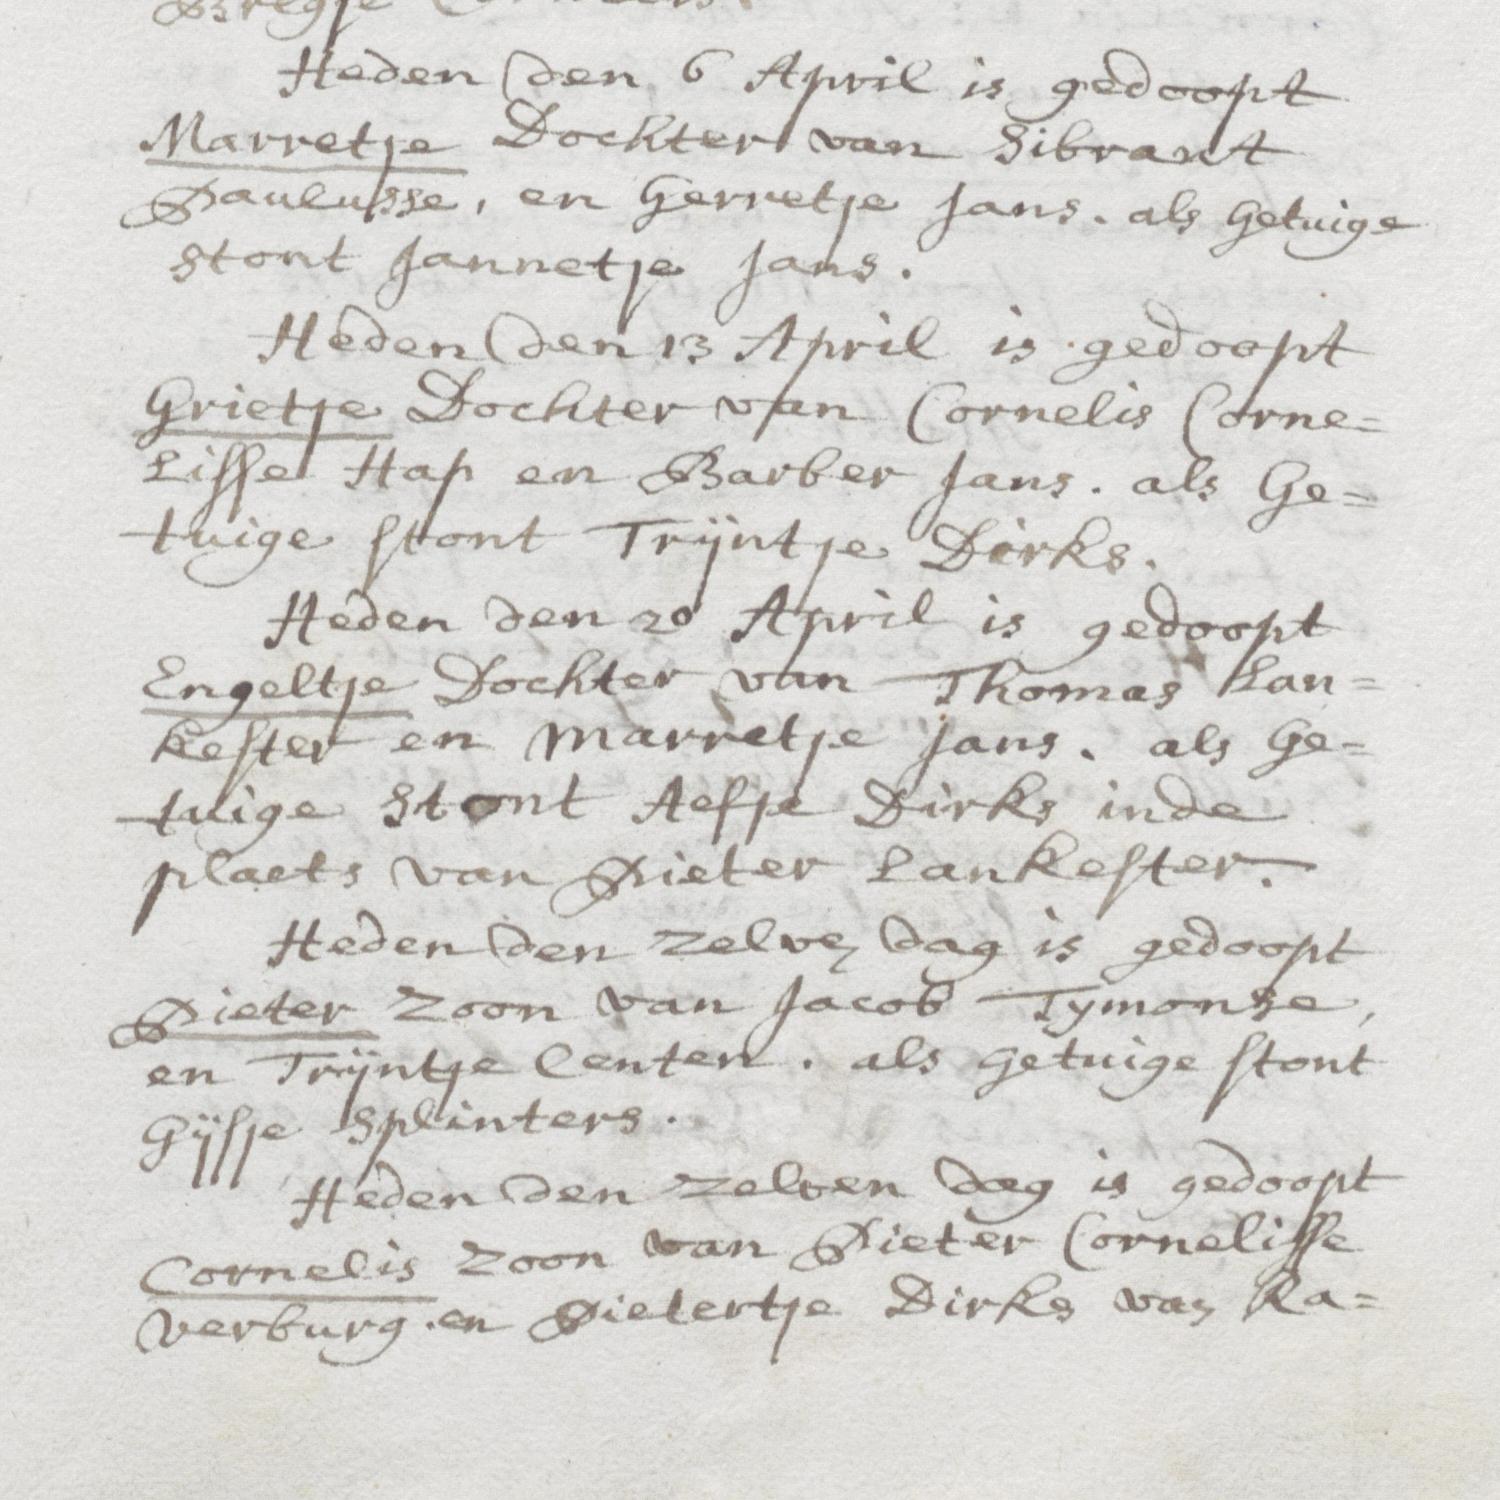 Heden den 6 April is gedoopt
Marretje Dochter van Sibrant
Paulusse, en Gerretje Jans. als Getuige
stont Jannetje Jans.
Heden den 13 April is gedoopt
Grietje Dochter van Cornelis Corne=
lisse Hap en Barber Jans. als Ge=
tuige stont Trijntje Dirks.
Heden den 20 April is gedoopt
Engeltje Dochter van Thomas Lan=
kester en Marretje Jans. als Ge=
tuige stont Aefje Dirks inde
plaets van Pieter Lankester.
Heden den zelven dag is gedoopt
Pieter Zoon van Jacob Tymonse,
en Trijntje Centen. als Getuige stont
Gijsje Splinters.
Heden den zelven dag is gedoopt
Cornelis Zoon van Pieter Cornelisse
Verburg. en Pietertje Dirks van Ka=